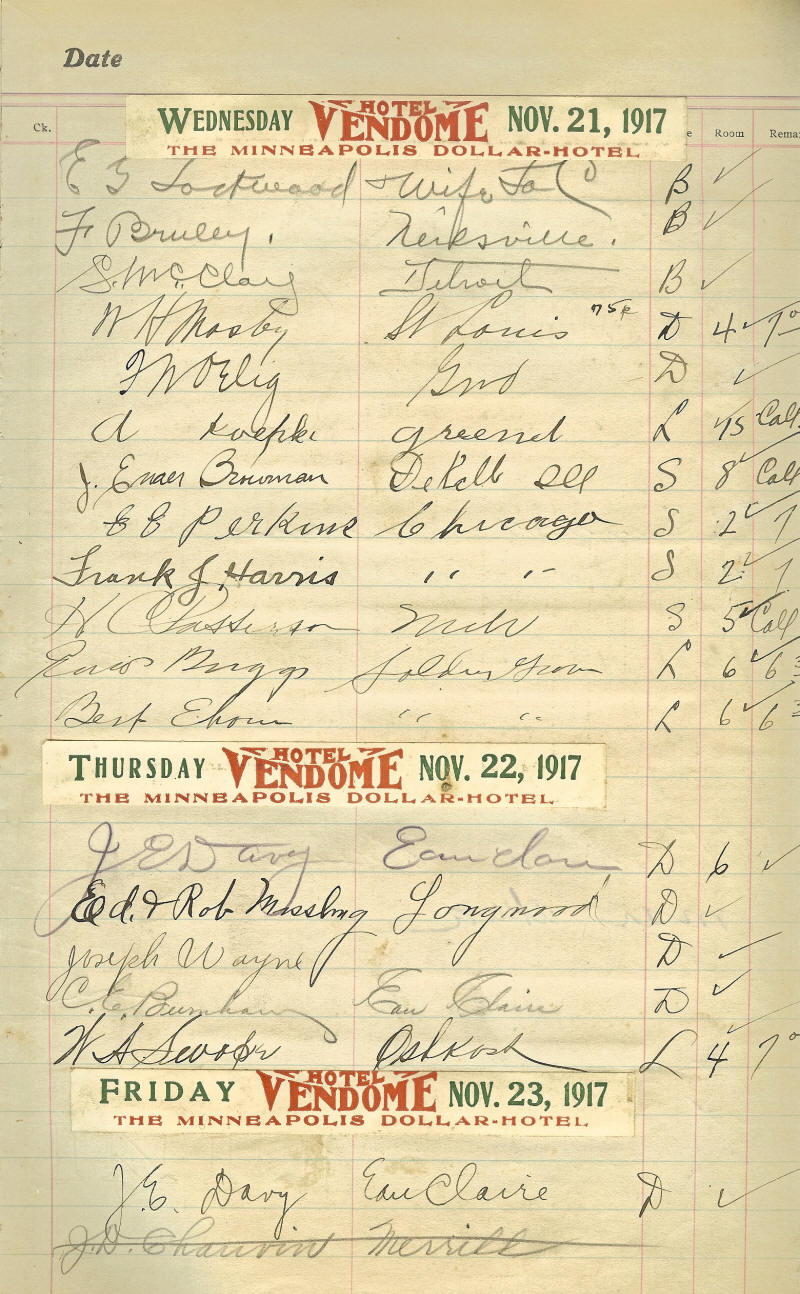 Date
Ck. Room Rema
WEDNESDAY HOTEL VENDOME NOV. 21, 1917
THE MINNEAPOLIS DOLLAR-HOTEL
E G Lockwood & Wife B ✓
F Bruley. Neilsville. B ✓
S. McClary Detroit B ✓
W H Mosby St Louis 75¢ D 4 ✓ 7⁰
D ✓
A Koepke Greend L 75 Call
J. Enaer Browman DeKalb Ill S 8 ✓ Call
E E Perkins Chicago S 2 ✓ 7
Frank J. Harris " " S 2 ✓ 7
H C Patterson S 5 ✓ Call
Briggs Soldiers Grove L 6 ✓ 6 3
Bert " " L 6 ✓ 6 3
THURSDAY HOTEL VENDOME NOV. 22, 1917
THE MINNEAPOLIS DOLLAR-HOTEL
J E Davy Eau Claire D 6 ✓
Ed. & Rob Missling Longwood D ✓
Joseph Wayne D ✓
C. E. Burnham Eau Claire D ✓
W A Oshkosh L 4 ✓ 7⁰
FRIDAY HOTEL VENDOME NOV. 23, 1917
THE MINNEAPOLIS DOLLAR-HOTEL
J. E. Davy Eau Claire D ✓
J. D. Chauvin Merrill